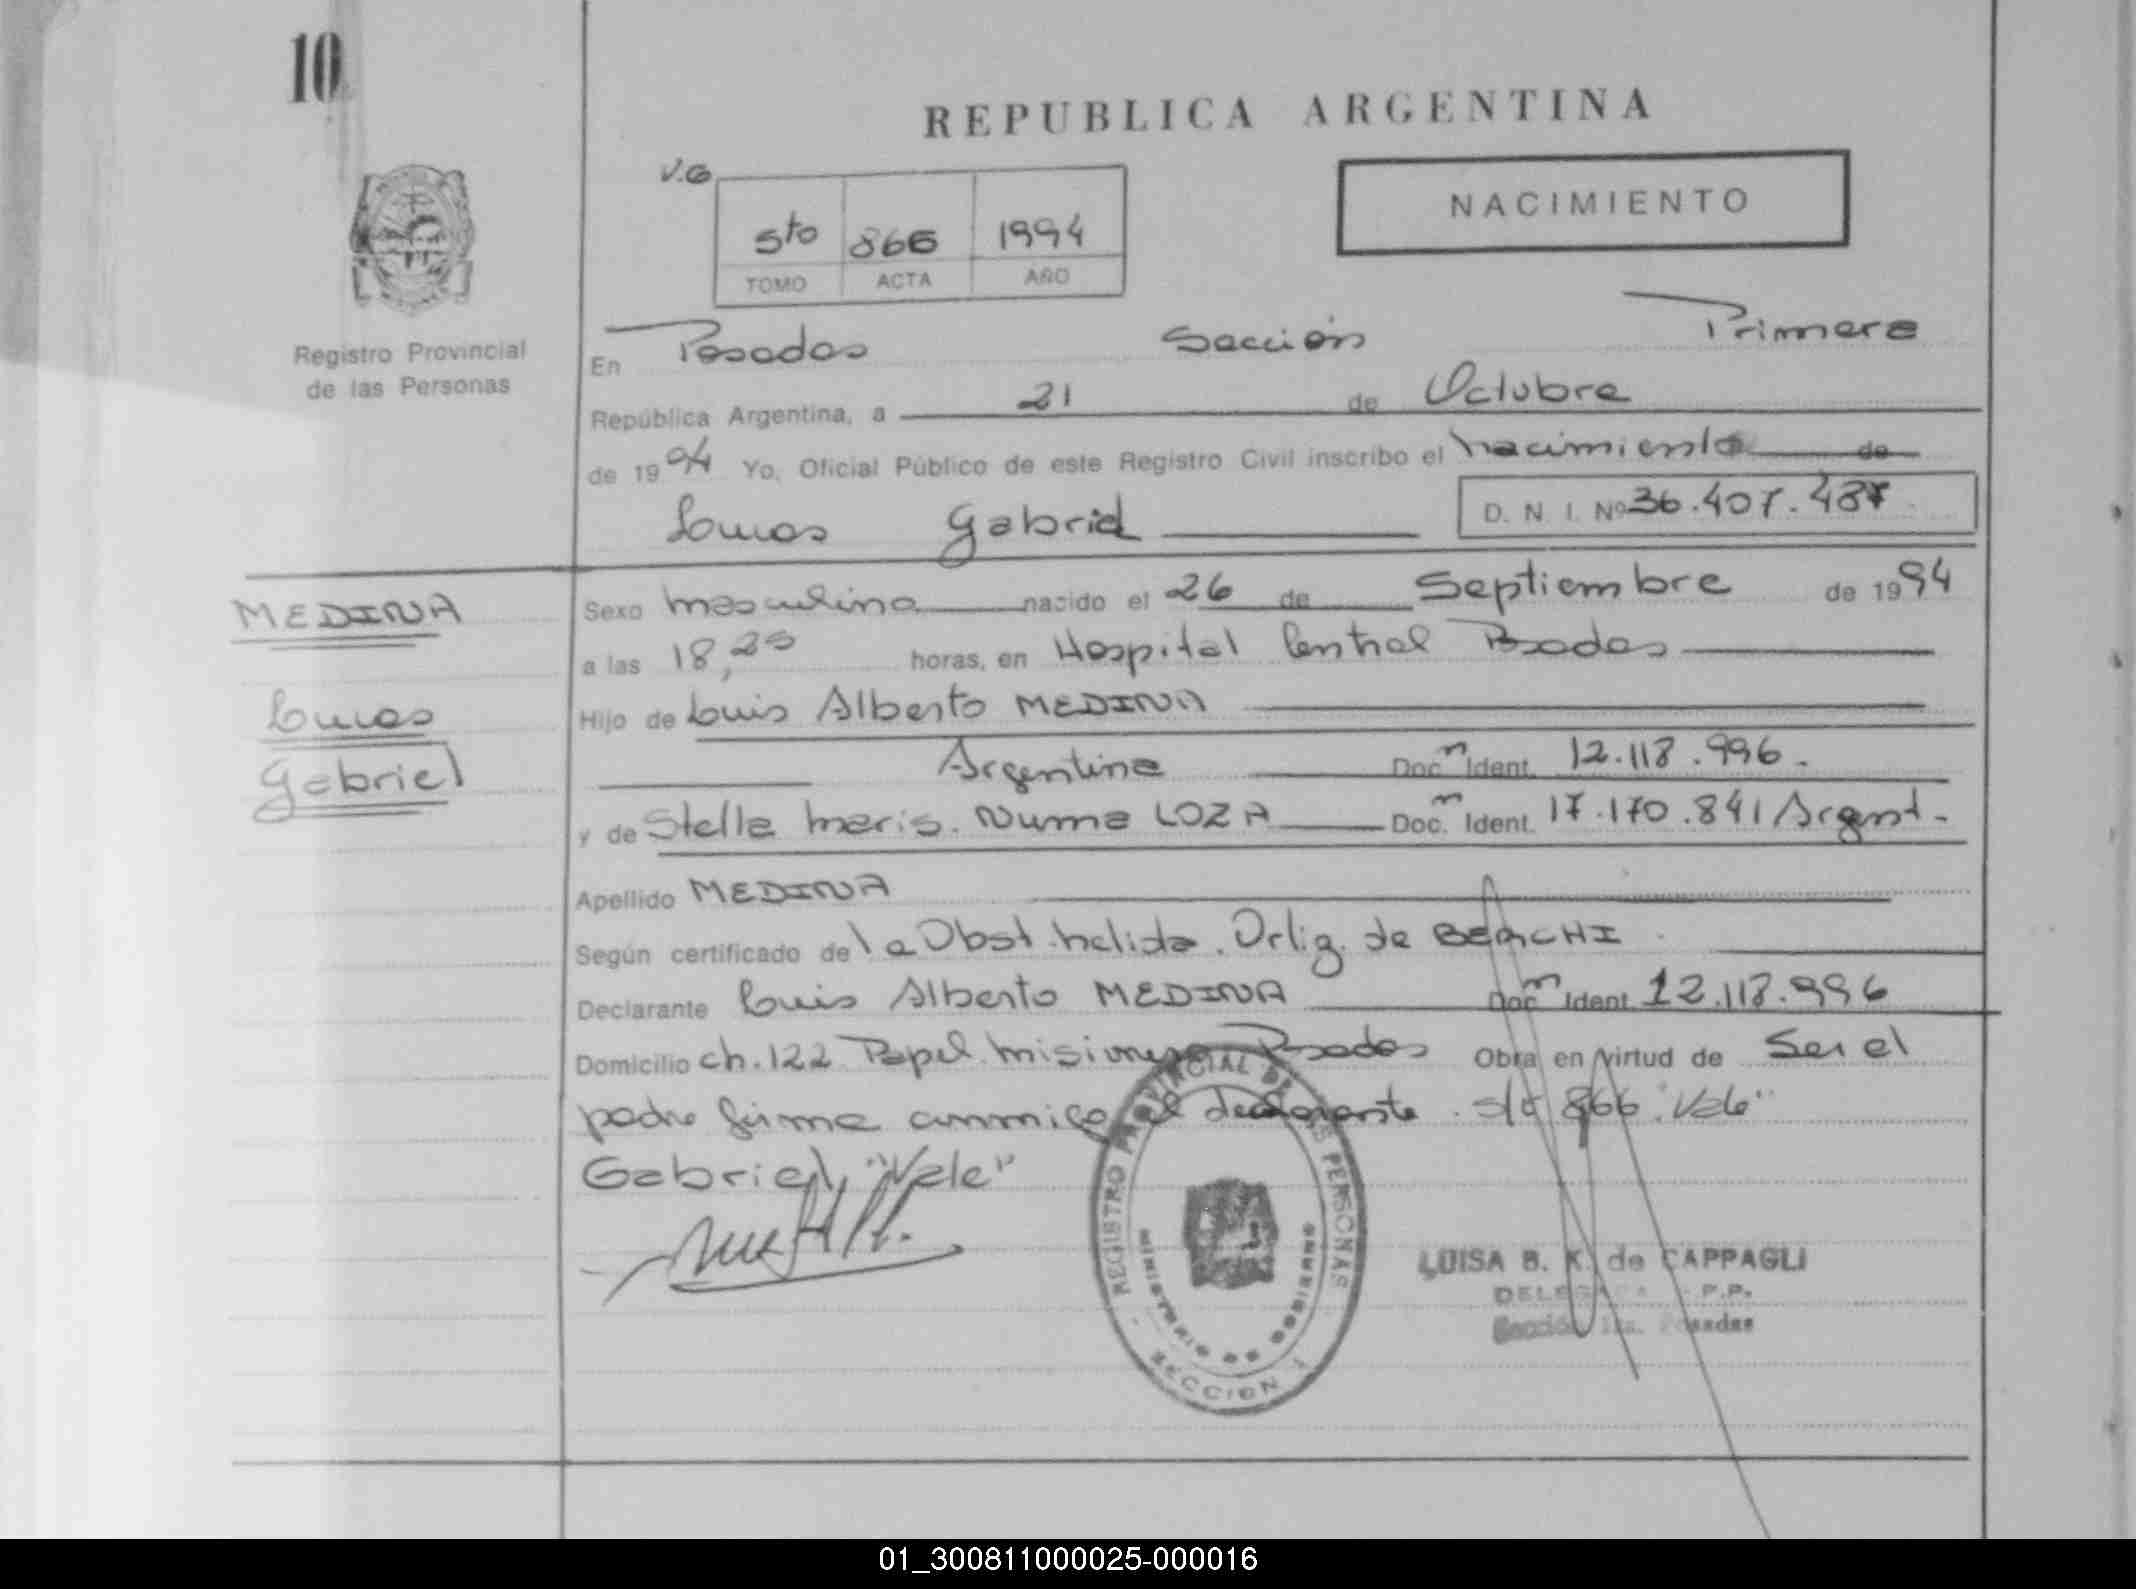 10
REPUBLICA ARGENTINA
V.G
NACIMIENTO
5to 866 1994
TOMO ACTA AÑO
Registro Provincial
de las Personas
En Posadas Sección Primera
República Argentina, a 21 de Octubre
de 1994 Yo, Oficial Público de este Registro Civil inscribo el nacimiento de
Lucas Gabriel D. N. I. Nº 36.407.487
MEDINA
Lucas
Gabriel
Sexo masculino nacido el 26 de Septiembre de 1994
a las 18, horas, en Hospital Central Posadas
Hijo de Luis Alberto MEDINA
Argentina Doc. Ident. 12.118.996.
y de Stella Maris. Numa LOZA Doc. Ident. 17.170.841 Argent.
Apellido MEDINA
Según certificado de la Obst. Ortig. de
Declarante Luis Alberto MEDINA Doc. Ident. 12.118.996
Domicilio ch. 122 Papel misionero Posadas Obra en virtud de Ser el
padre firma conmigo el declarante. s/r 866 "Vale"
Gabriel "Vale"
REGISTRO PROVINCIAL DE LAS PERSONAS
MINISTERIO DE GOBIERNO
SECCION 1
LUISA B. K. de CAPPAGLI
DELEGADA R.P.P.
Sección 1ra. Posadas
01_300811000025-000016